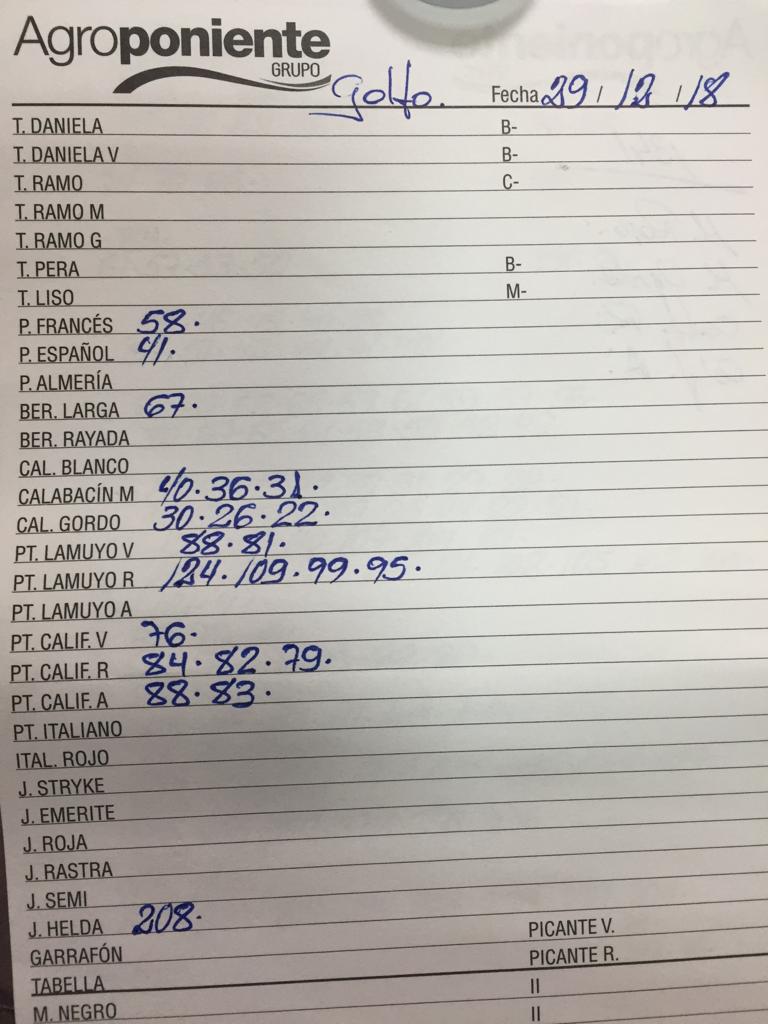 Agroponiente
GRUPO
Golfo. Fecha 29 / 12 / 18
T. DANIELA B-
T. DANIELA V B-
T. RAMO C-
T. RAMO M
T. RAMO G
T. PERA B-
T. LISO M-
P. FRANCÉS 58.
P. ESPAÑOL 41.
P. ALMERÍA
BER. LARGA 67.
BER. RAYADA
CAL. BLANCO
CALABACÍN M 40.36.31.
CAL. GORDO 30.26.22.
PT. LAMUYO V 88.81.
PT. LAMUYO R 124.109.99.95.
PT. LAMUYO A
PT. CALIF. V 76.
PT. CALIF. R 84.82.79.
PT. CALIF. A 88.83.
PT. ITALIANO
ITAL. ROJO
J. STRYKE
J. EMERITE
J. ROJA
J. RASTRA
J. SEMI
J. HELDA 208.
PICANTE V.
GARRAFÓN PICANTE R.
TABELLA II
M. NEGRO II